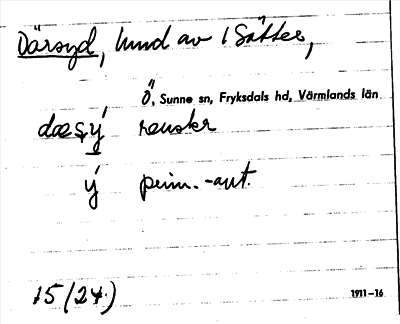 Därsyd, hmd av 1 Sätter,
Ö, Sunne sn, Fryksdals hd, Värmlands län
dæșý renskr
ý prim.-ant.
15 (24.)
1911-16